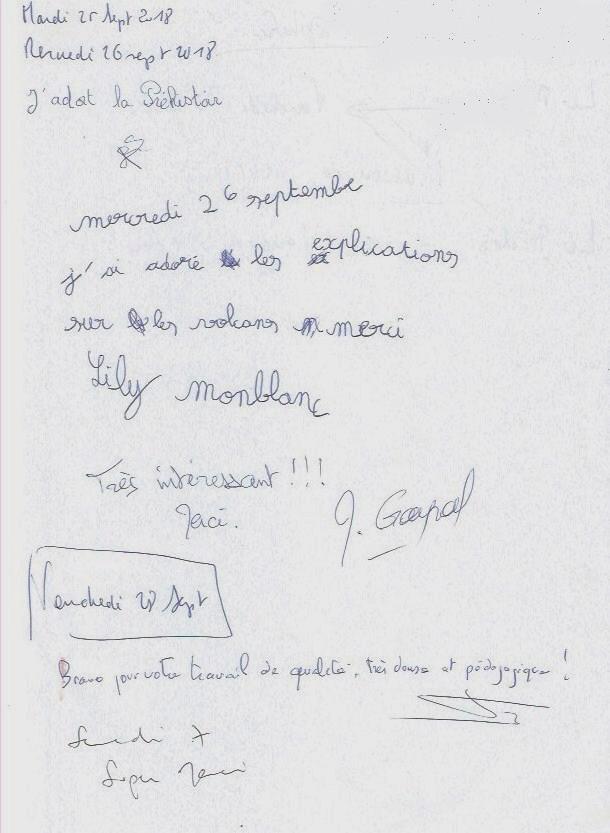 Mardi 25 Sept 2018
Mercredi 26 sept 2018
J'adort la Préhistoir
mercredi 26 septembre
j'ai adoré les explications
sur les volcans merci
Lily Monblanc
Très intéressant !!!
Merci. J.
Vendredi 28 Sept
Bravo pour votre travail de qualité, très dense et pédagogique !
Samedi
Super Merci